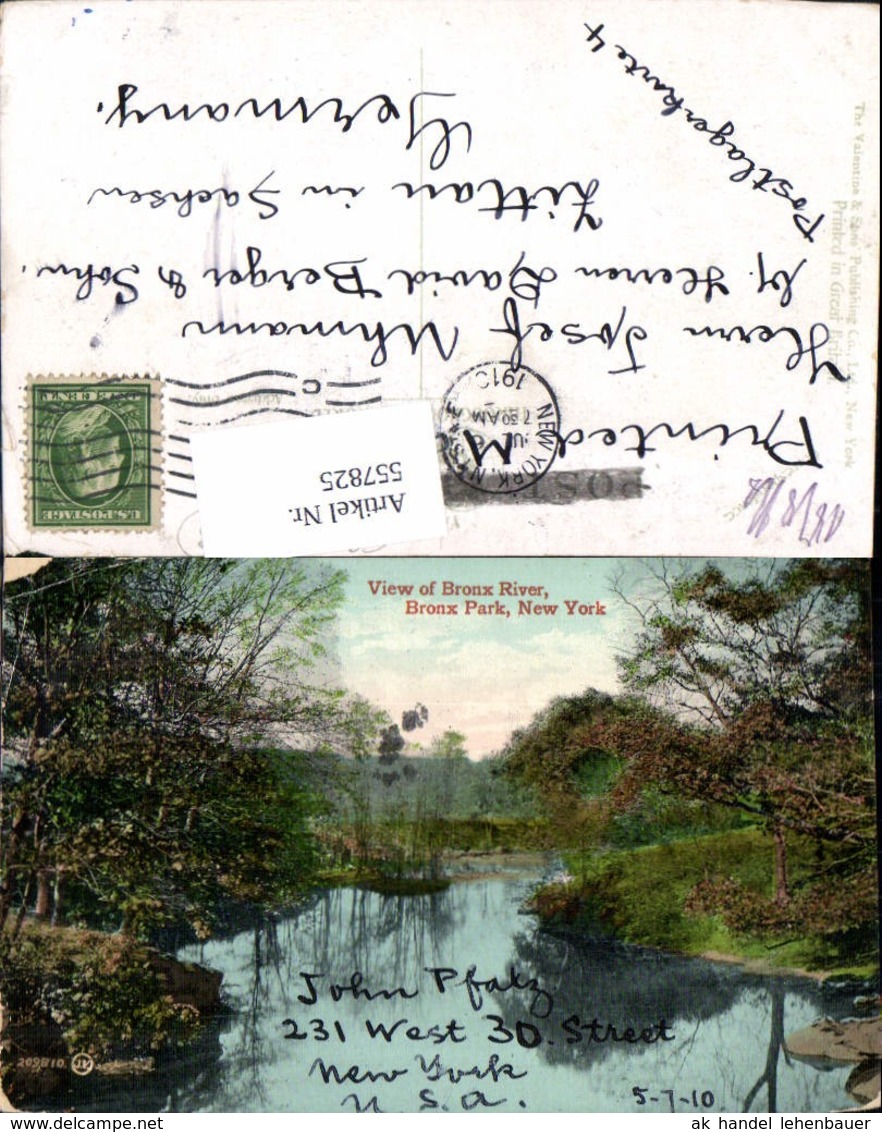 Postlagerkarte 4
Printed M
Herrn Josef Uhmann
bz. Herren David Berger & Sohn.
Zittau in Sachsen
Germany.
The Valentine & Sons Publishing Co., Ltd., New York
Printed in Great
POST
NEW YORK, N.Y.
7 30 AM
1910
U.S. POSTAGE
Artikel Nr.
557825
View of Bronx River,
Bronx Park, New York
John Pfalz
231 West 30. Street
New York
U. S. a.
5-7-10
209810. JV
ak handel lehenbauer